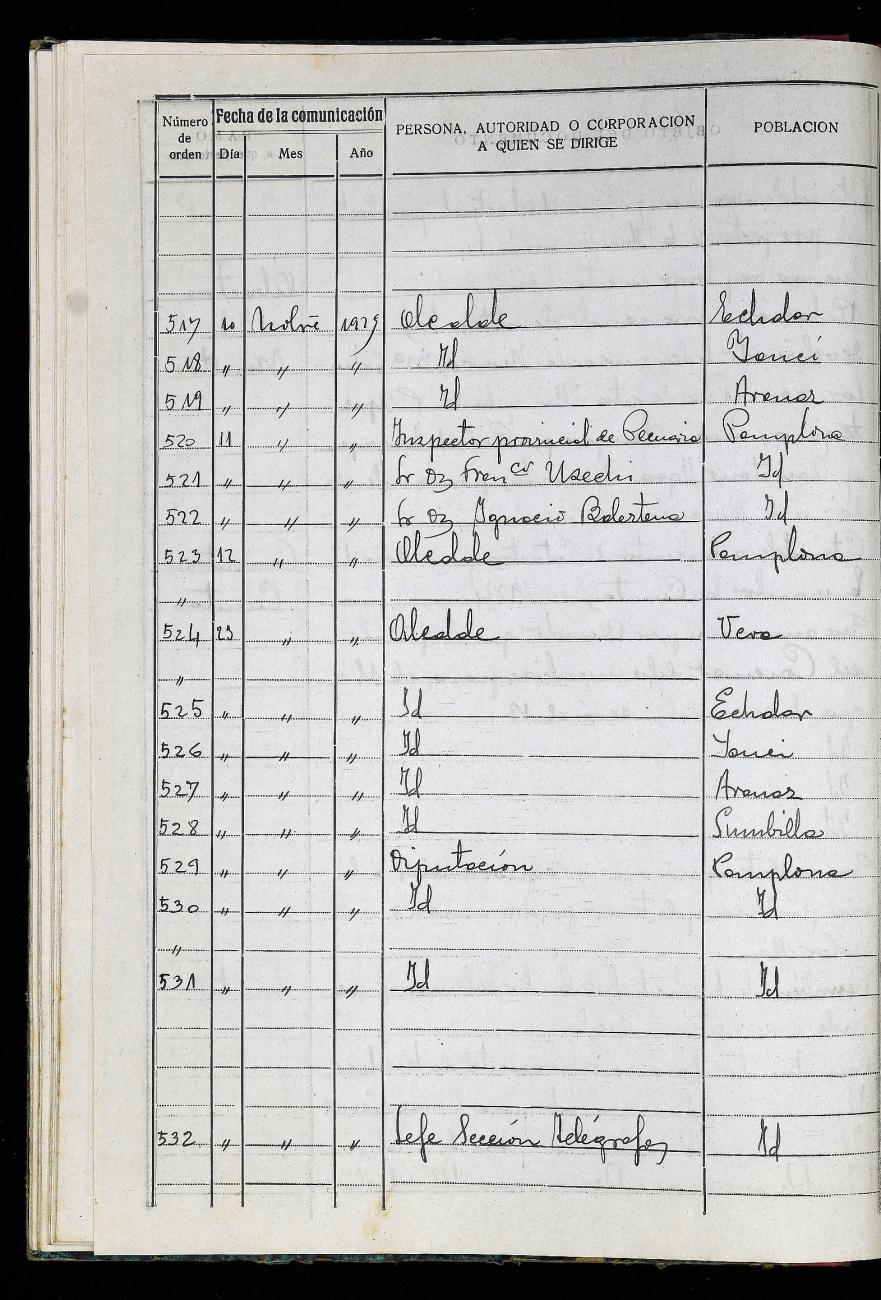 Número de orden Fecha de la comunicación PERSONA, AUTORIDAD O CORPORACION A QUIEN SE DIRIGE POBLACION
Día Mes Año
517 10 Novbre 1929 Alcalde Echalar
518 " " " Id Yanci
519 " " " Id Aranaz
520 11 " " Inspector provincial de Pecuaria Pamplona
521 " " " Sr Dn Francco Usechi Id
522 " " " Sr Dn Ignacio Balestena Id
523 12 " " Alcalde Pamplona
"
524 23 " " Alcalde Vera
"
525 " " " Id Echalar
526 " " " Id Yanci
527 " " " Id Aranaz
528 " " " Id Sumbilla
529 " " " Diputación Pamplona
530 " " " Id Id
"
531 " " " Id Id
532 " " " Jefe Sección Telégrafos Id